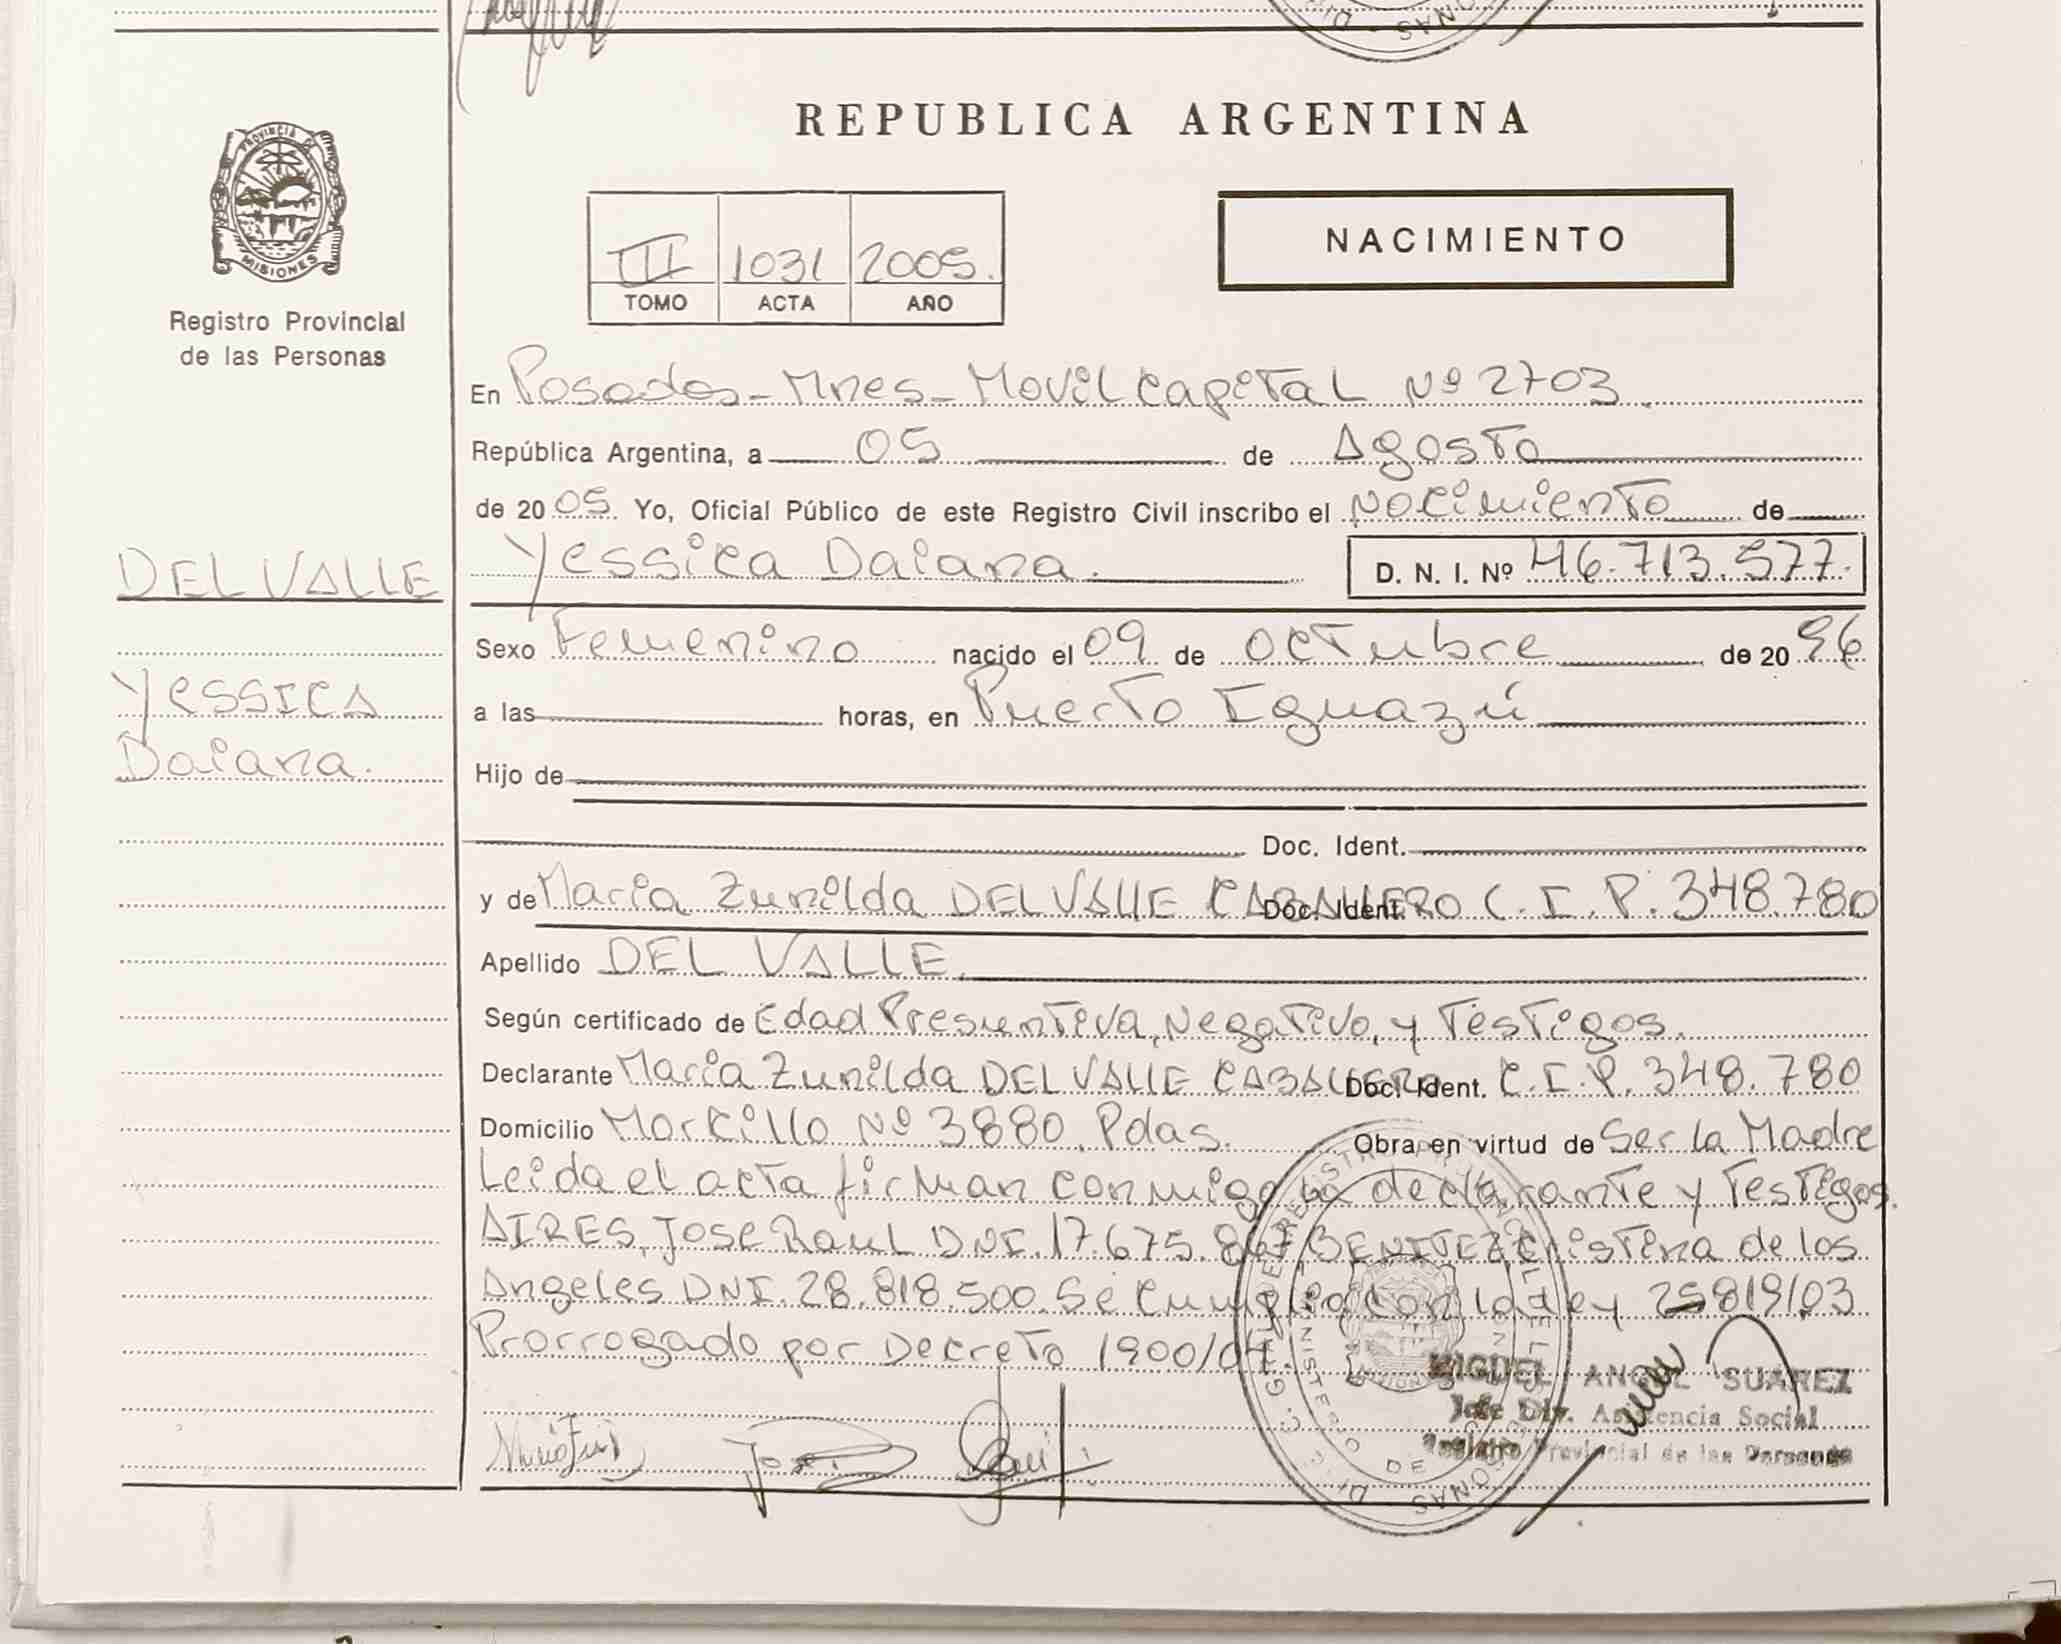 REPUBLICA ARGENTINA
PROVINCIA DE
MISIONES
Registro Provincial
de las Personas
III 1031 2005.
TOMO ACTA AÑO
NACIMIENTO
En Posadas - Mnes - Movil Capital Nº 2703.
República Argentina, a 05 de Agosto
de 2005. Yo, Oficial Público de este Registro Civil inscribo el nacimiento de
DEL VALLE
Yessica Daiana. D. N. I. Nº 46.713.577.
Sexo Femenino nacido el 09 de octubre de 20 96
Yessica
a las horas, en Puerto Iguazú
Daiana.
Hijo de
Doc. Ident.
y de Maria Zunilda DEL VALLE CABALLERO Doc. Ident. C.I.P. 348.780
Apellido DEL VALLE.
Según certificado de Edad Presuntiva, Negativo, y Testigos.
Declarante Maria Zunilda DEL VALLE CABALLERO Doc. Ident. C.I.P. 348.780
Domicilio Morcillo Nº 3880. Pdas. Obra en virtud de Ser la Madre
Leida el acta firman conmigo la declarante y Testigos.
AIRES, Jose Raul DNI. 17.675.867 BENITEZ Cristina de los
Angeles DNI. 28.818.500. Se cumplio con la Ley 25819/03
Prorrogado por Decreto 1900/04.
MIGUEL ANGEL SUAREZ
Jefe Div. Asistencia Social
Registro Provincial de las Personas